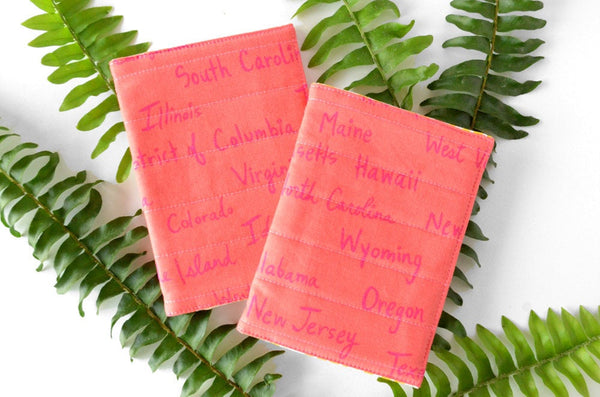 South Caroli
Illinois
strict of Columbia
Virgini
Colorado
Island
Maine West V
setts Hawaii
orth Carolina New
Wyoming
labama
Oregon
New Jersey
Tex